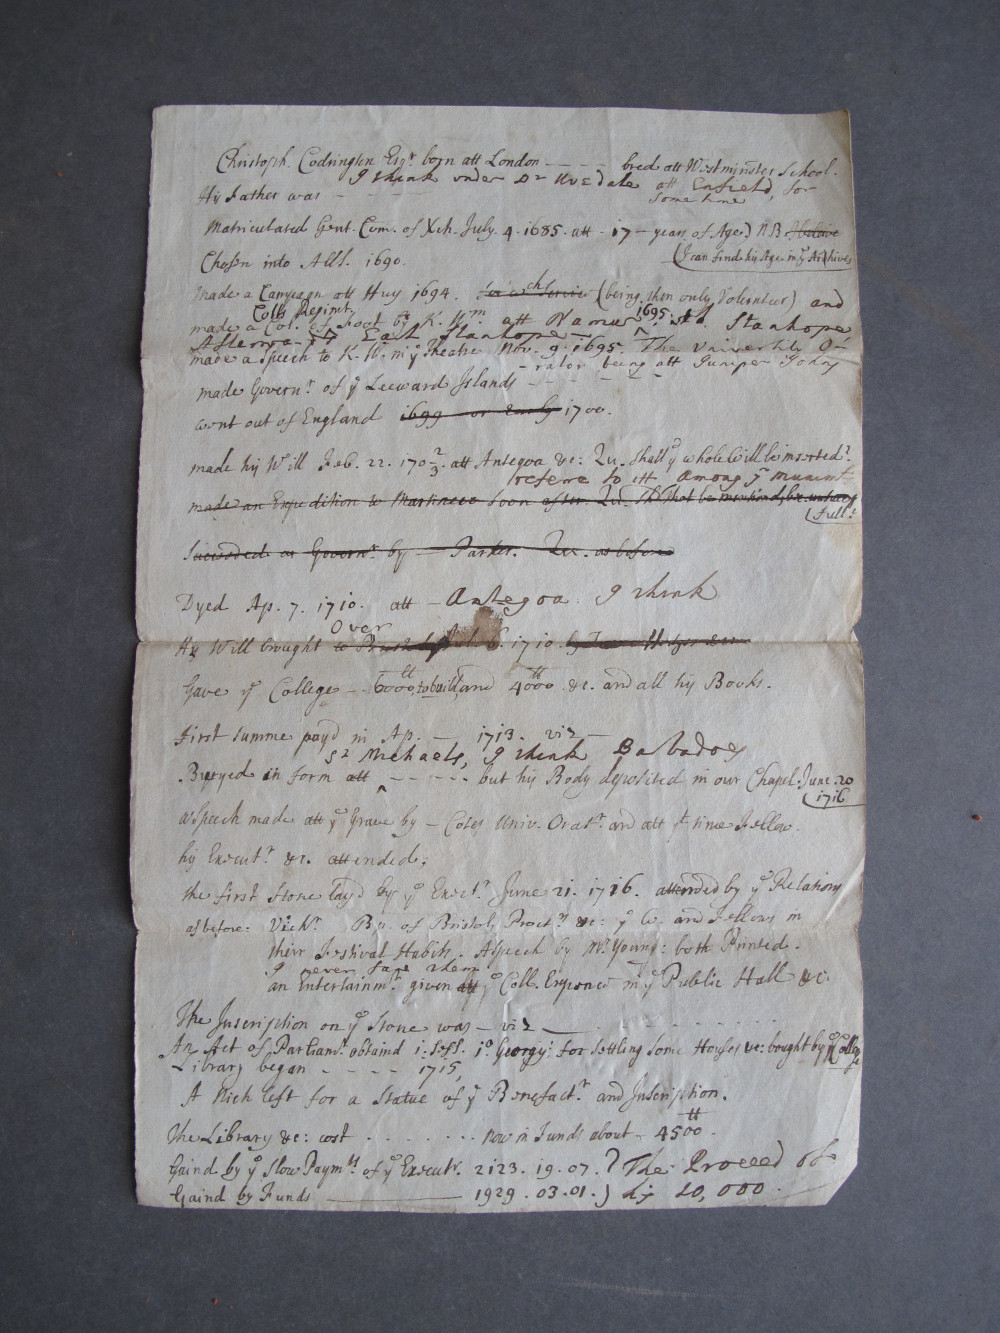 Christoph. Codrington Esqr. born att London - - - - bred att Westminster School.
I think under Dr Uvedale att Enfield, for
His Father was - - some time
Matriculated Gent. Com. of Xch. July. 4. 1685. att - 17 - years of Age) NB
(I can find his Age in ye Archives
Chosen into All S. 1690.
made a Campaign att Huy 1694. for wch Service (being then only Volunteer) and
Colls Regimt 1695
made a Col. of Foot by K. Wm att Namur. Stanhope
Afterwards Earl Stanhope
made a Speech to K. W. in ye Theatre Nov. 9. 1695. The University Or-
-rator being att Juniper
made Governr of ye Leeward Islands - - - -
went out of England 1699 or Early 1700.
made his Will Feb. 22. 170 2/3. att Antegoa &c: Qu. shall ye whole Will be inserted?
referre to itt among ye munimts
made an Expedition to Martineco soon after. Qu.
full?
Succeeded as Governr by Parker. Qu. as before
Dyed Ap. 7. 1710. att - Antegoa I think
Over
His Will brought to 1710. by
Gave ye College - 6000 tt to build, and 4000 tt &c. and all his Books.
First summe payd in Ap. - 1713. viz -
St Michaels, I think Barbadoes
Buryed in form att - - - - - but his Body deposited in our Chapel. June. 20
1716
a Speech made att ye Grave by - Cotes Univ. Oratr. and att yt time Fellow.
his Executr. &c. attended.
the first Stone layd by ye Execr. June 21. 1716. attended by ye Relations
as before: Vich. Bp. of Bristol, Proctrs &c: ye W. and Fellows in
their Festival Habits. A Speech by Mr. Young: both Printed.
I never saw them
an Entertainmt. given att ye Coll. Expence in ye Public Hall &c.
The Inscription on ye Stone was - viz - - - - - - - -
An Act of Parliamt. obtaind 1. Sess. 1o. Georgij: for settling some Houses &c: bought by ye College
Library began - - - - 1715,
A Nich left for a Statue of ye Benefactr. and Inscription.
the Library &c: cost - - - - - - - Now in Funds about - 4500 tt.
Gaind by ye slow Paymts of ye Executr. 2123. 19. 07. } The Proceed of
Gaind by Funds 1929. 03. 01. } his 10,000.